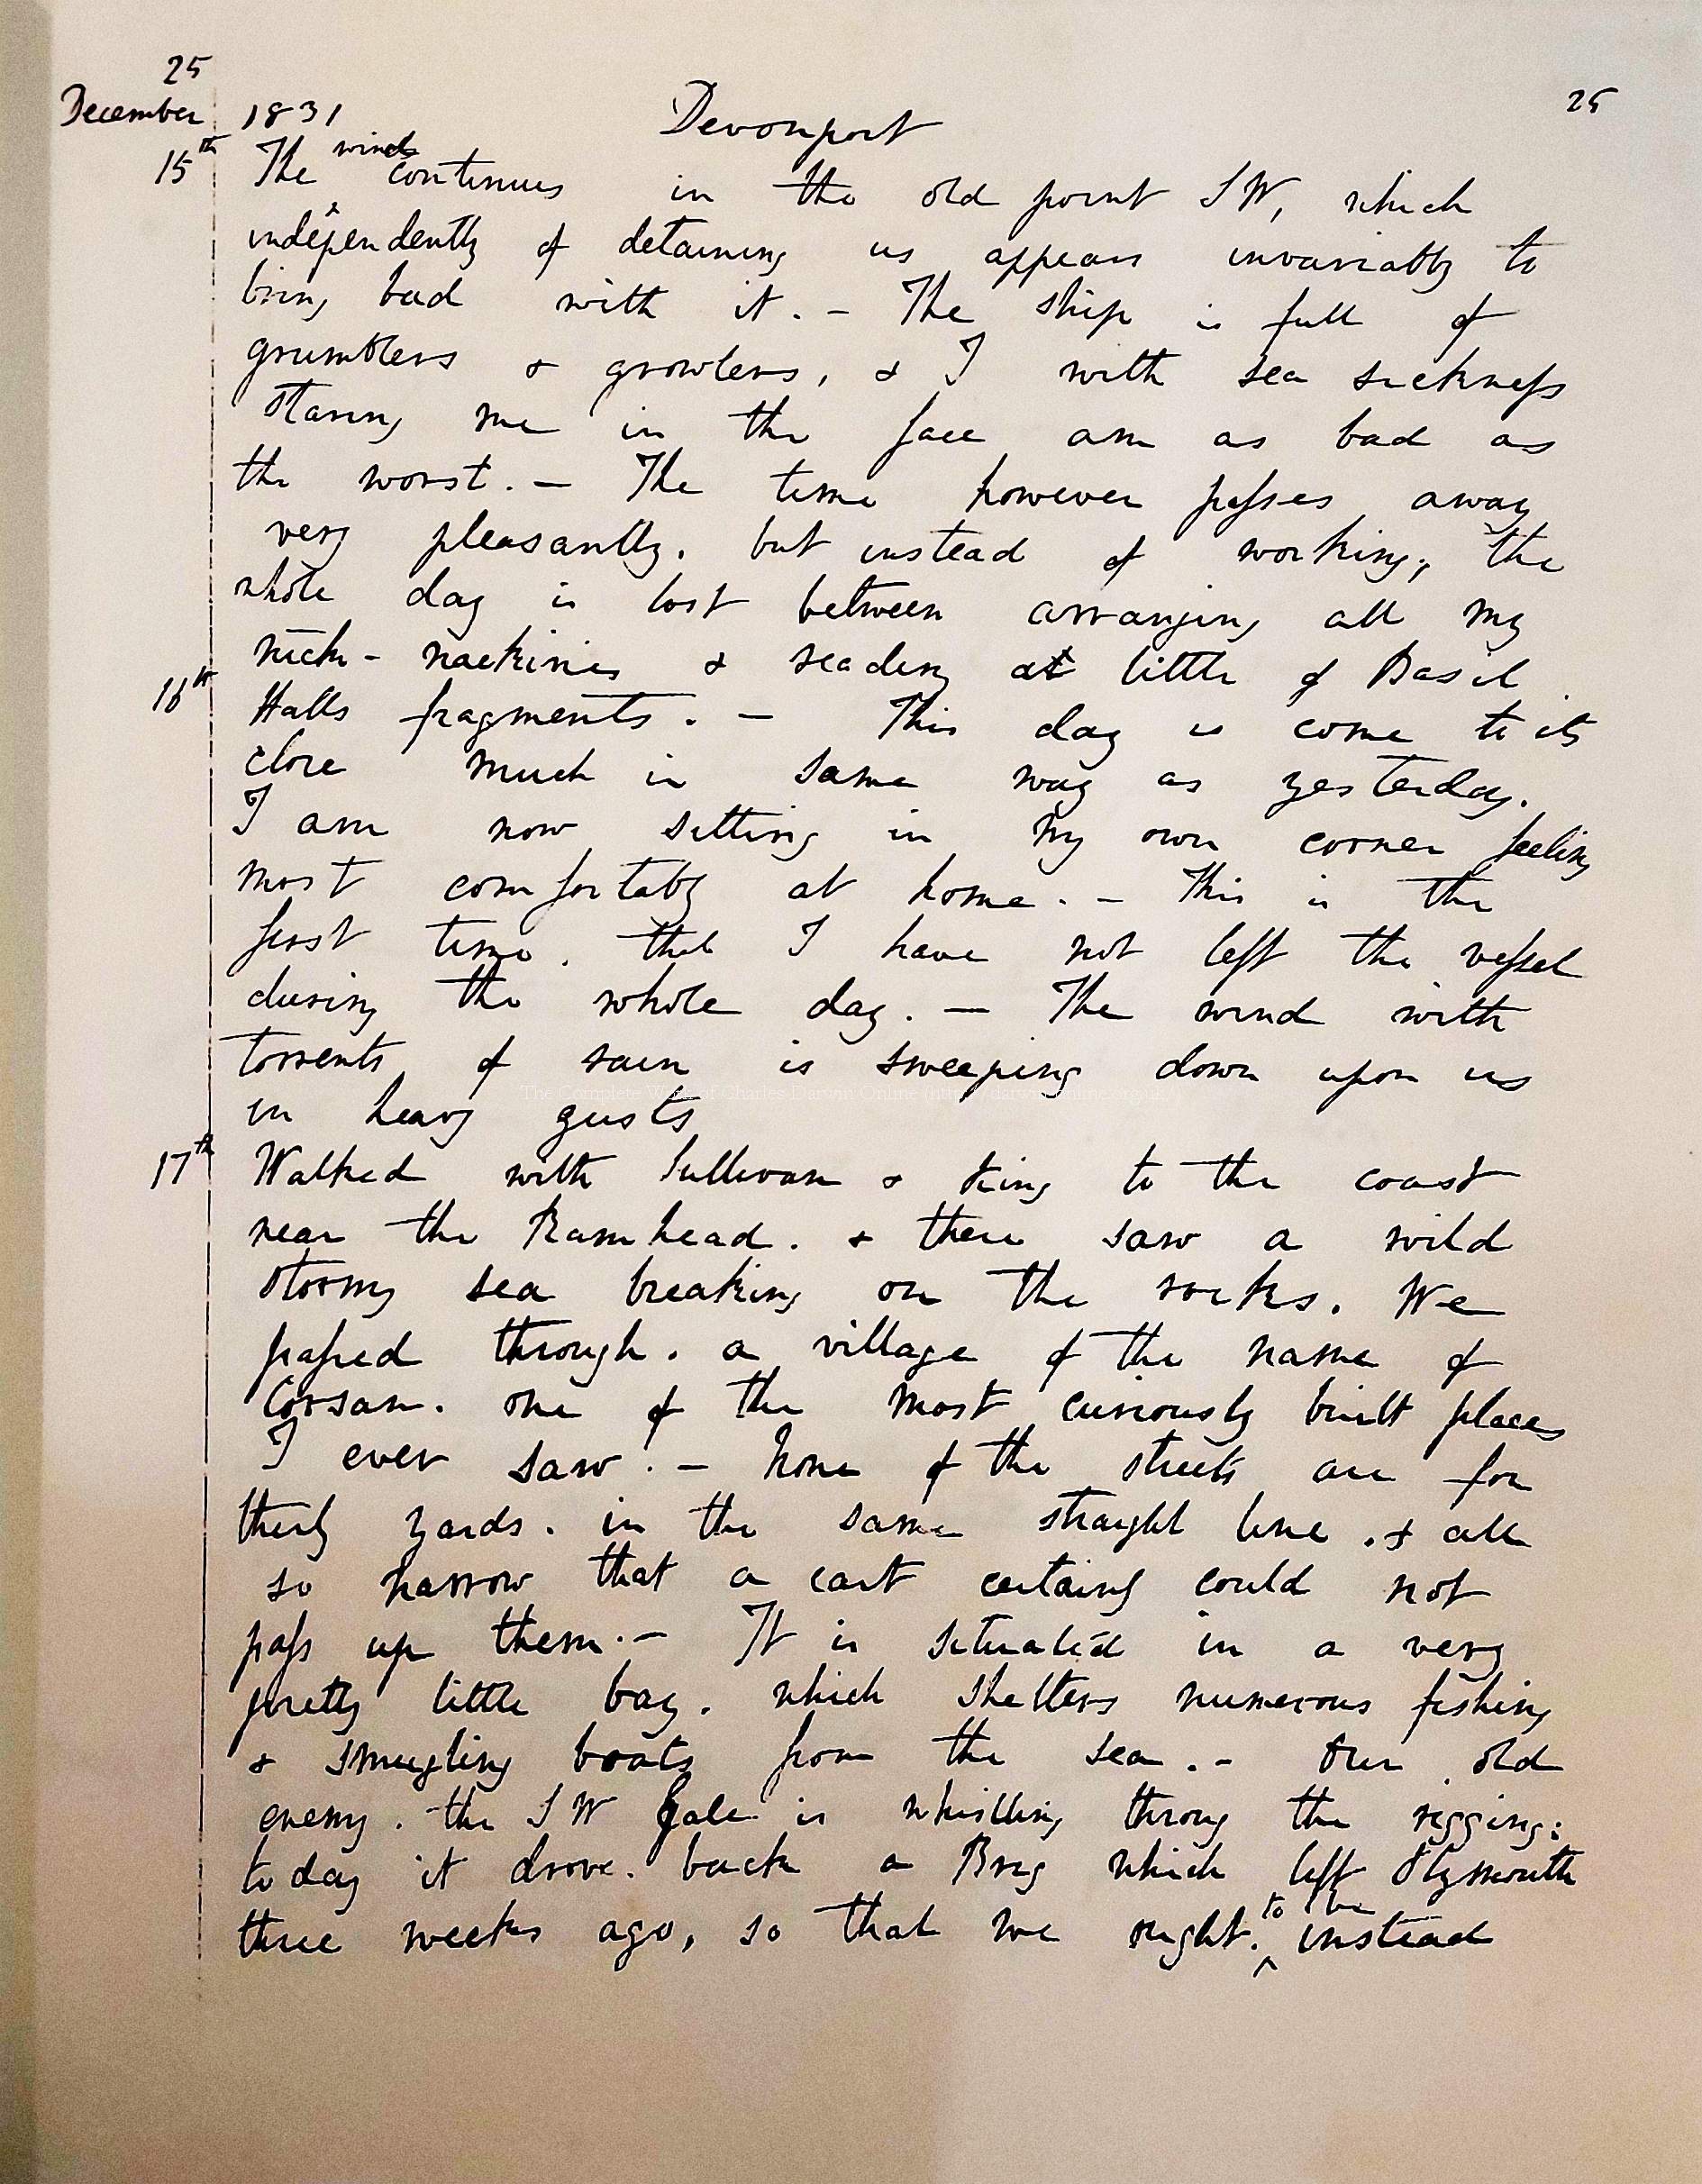 25
December 1831 Devonport 25
15th The wind continues in the old point SW, which
independently of detaining us appears invariably to
bring bad with it. — The ship is full of
grumblers & growlers, & I with sea sickness
staring me in the face am as bad as
the worst. — The time however passes away
very pleasantly. but instead of working, the
whole day is lost between arranging all my
nick-nackines & reading at little of Basil
16th Halls fragments. — This day is come to its
close much in same way as yesterday.
I am now sitting in my own corner feeling
most comfortably at home. — This is the
first time. that I have not left the vessel
during the whole day. — The wind with
torrents of rain is sweeping down upon us
in heavy gusts
17th Walked with Sullivan & King to the coast
near the Ramhead. & there saw a wild
stormy sea breaking on the rocks. We
passed through. a village of the name of
Corsan. one of the most curiously built places
I ever saw. — None of the streets are for
thirty yards. in the same straight line. & all
so narrow that a cart certainly could not
pass up them. — It is situated in a very
pretty little bay. which shelters numerous fishing
& smugling boats from the sea. — Our old
enemy. the SW Gale is whistling throug the rigging:
to day it drove. back a Brig which left Plymouth
three weeks ago, so that we ought. to be instead